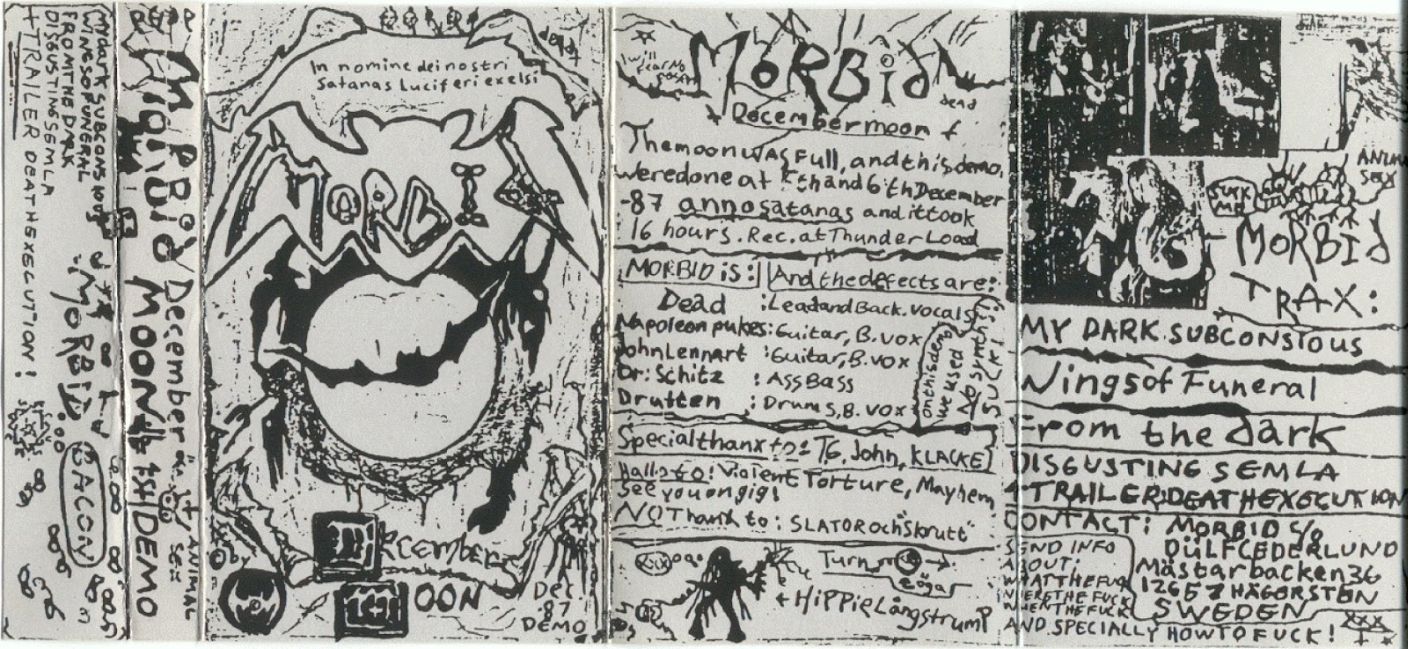 My dark subconstous
Wings of Funeral
From the dark
Disgusting semla
+ TRAILER DEATHEXECUTION!
MORBID
BACON
MORBID December
MOON 1st DEMO
ANIMAL
SEX
dead
In nomine dei nostri
Satanas Luciferi exelsi
MORBID
DECEMBER
MOON
Dec
87
DEMO
MORBid
dead
+ December moon +
The moon WAS Full, and this demo,
were done at 5th and 6th December
-87 anno satanas and it took
16 hours. Rec. at Thunder Load
MORBID is: And the defects are:
Dead : Lead and Back. vocals
Napoleon pukes: Guitar, B. vox
John Lennart : Guitar, B. vox
Dr. Schitz : Ass Bass
Drutten : Drums, B. vox
on this demo
we used
No synths!
SUCK!
Special thanx to: TG, John, KLACKE
Hallo to! Violent Torture, Mayhem,
see you on gig!
NO Thanx to: SLATOR och "Skrutt"
Turn
+ HIPPIE Långstrump
ANIMAL
SEX
SUCK
ME
MORBID
TRAX:
MY DARK SUBCONSTOUS
Wings of Funeral
From the dark
DISGUSTING SEMLA
+ TRAILER: DEATHEXECUTION
CONTACT: MORBID c/o
DÜLF CEDERLUND
Mästarbacken 36
12657 HÄGERSTEN
SWEDEN
SEND INFO
ABOUT:
WHAT THE FUCK
WHERE THE FUCK
WHEN THE FUCK
AND SPECIALLY HOW TO FUCK!
XXX